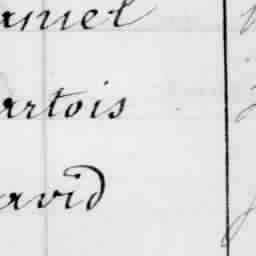 aniel
artois
avid